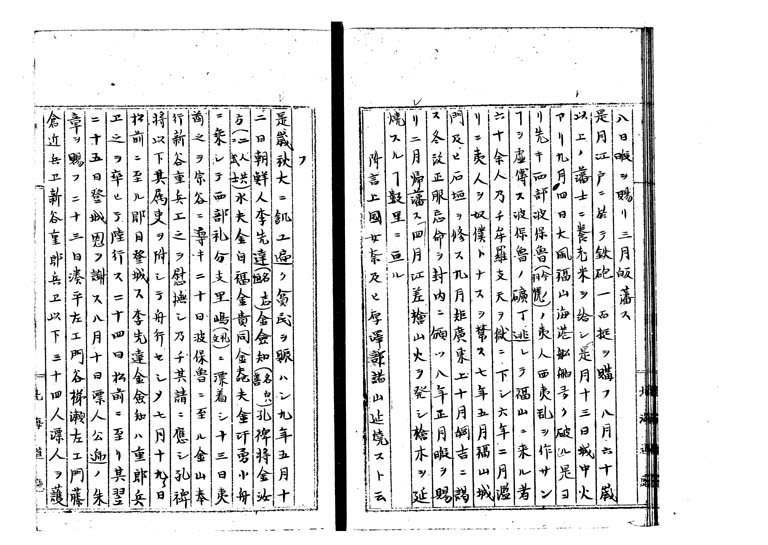 八日暇ヲ賜リ三月皈藩ス
是月江戸ニ於テ鉄砲一百挺ヲ購フ八月六十歳
以上ノ藩士ニ養老米ヲ給シ是月十三日城中火
アリ九月四日大風福山海港船舶多ク破ル是ヨ
リ先キ西部波保魯ノ夷人西夷乱ヲ作サン
ヿヲ虚傳ス波保魯ノ礦丁逃レテ福山ニ来ル者
六十余人乃千牟羅支天ヲ獄ニ下シ六年二月濫
リニ夷人ヲ奴僕トナスヲ禁ス七年五月福山城
門及ヒ石垣ヲ修ス九月矩廣東上十月綱吉ニ謁
ス冬改正服忌命ヲ封内ニ頒ツ八年正月暇ヲ賜
リ二月帰藩ス四月江差檜山火ヲ発シ檜木ヲ延
焼スルヿ数里ニ亘ル
附言上國女奈及ヒ厚澤諸山延焼スト云
フ
是歳秋大ニ飢エ遍ク貧民ヲ賑ハン九年五月十
二日朝鮮人李先達金僉知孔裨將金汝
方水夫金白福金貴同金夫金小舟
ニ乗シテ西部礼分支里嶋ニ漂着シ十三日夷
酋之ヲ宗谷ニ導キ二十日波保魯ニ至ル金山奉
行新谷重兵エ之ヲ慰撫シ乃チ其請ニ應シ孔裨
将以下其属吏ヲ附シテ舟行セシメ七月十九日
松前ニ至ル即日登城ス李先達金僉知ハ重郎兵
エ之ヲ率ヒテ陸行ス二十四日松前ニ至リ其翌
二十五日登城恩ヲ謝ス八月十日漂人公廨ノ朱
章ヲ賜フ二十三日湊平左エ門谷梯瀬左エ門藤
倉近兵卫新谷重郎兵卫以下三十四人漂人ヲ護